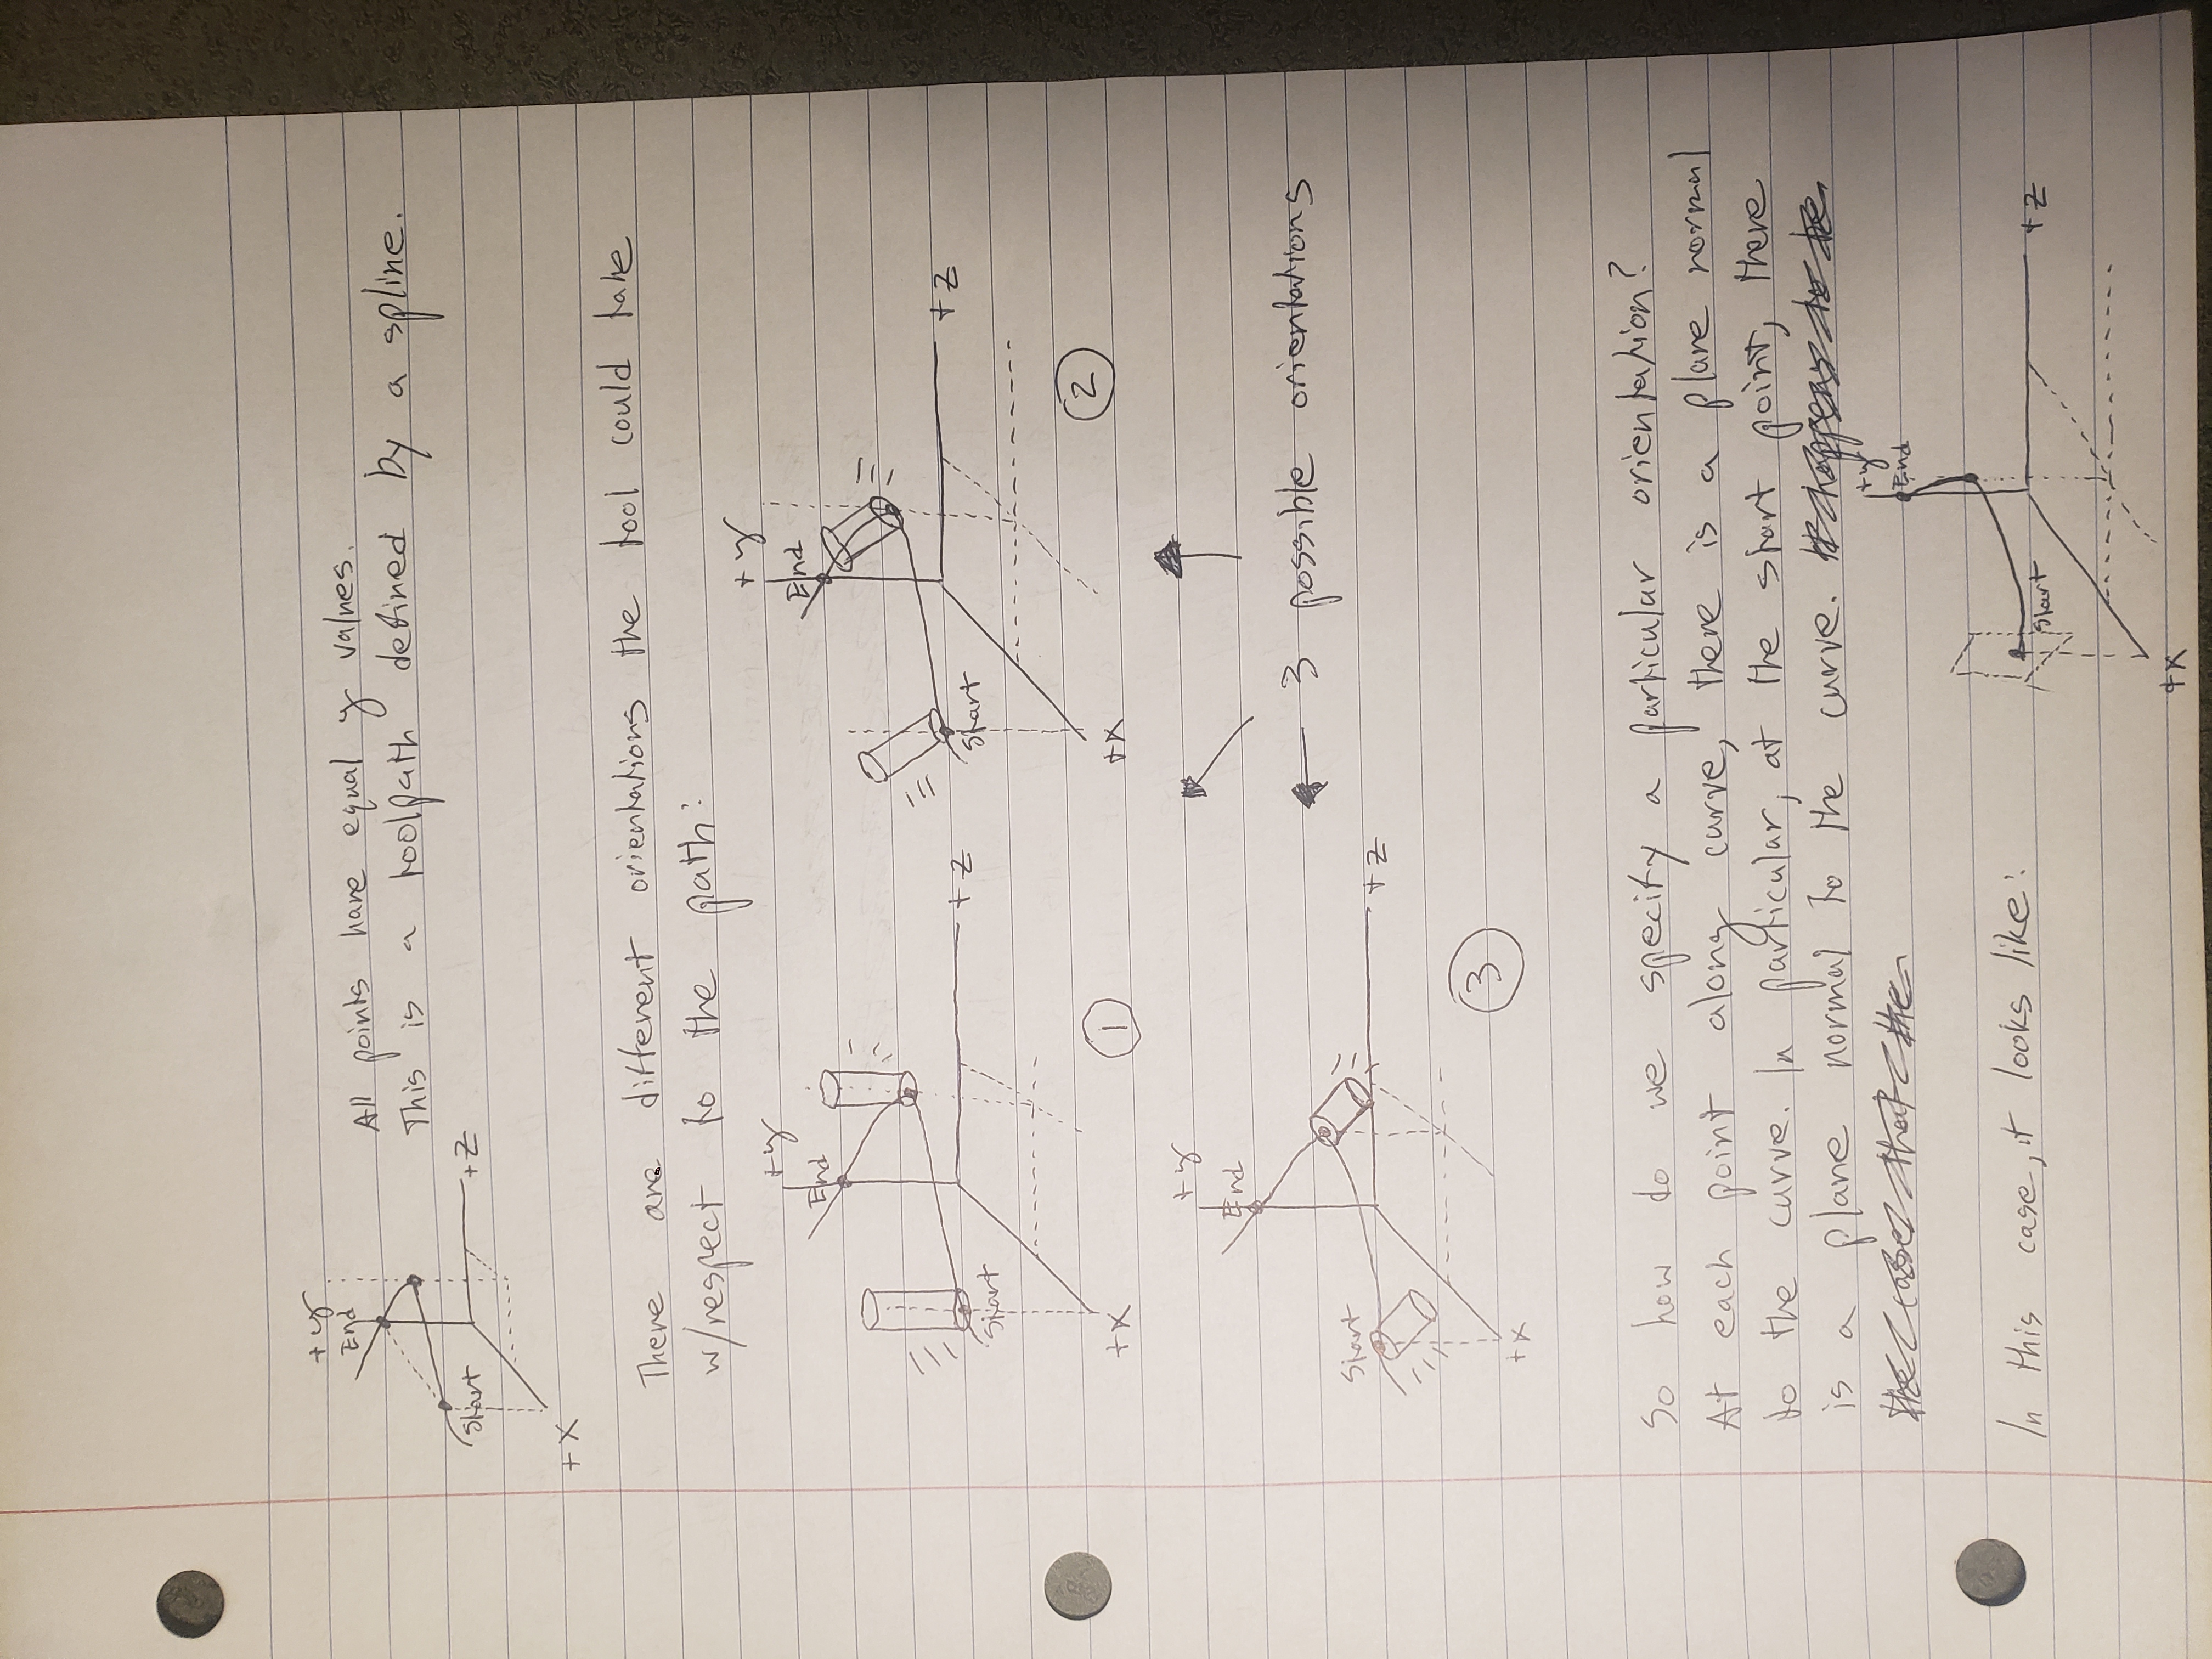 +y
End
All points have equal y values.
This is a toolpath defined by a spline.
Start
+Z
+X
There are different orientations the tool could take
w/respect to the path:
+y
End
Start
+Z
+X
1
+y
End
Start
+Z
+X
2
+y
End
Start
3 possible orientations
+Z
+X
3
So how do we specify a particular orientation?
At each point along curve, there is a plane normal
to the curve. In particular, at the start point, there
is a plane normal to the curve. It happens to be
the case that the
+y
End
In this case, it looks like:
Start
+Z
+X